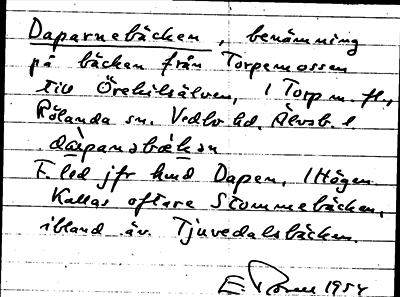 Daparnebäcken, benämning
på bäcken från Torpemossen
till Örekilsälven, i Torp m. fl.,
Rölanda sn. Vedbo hd. Älvsb. l
dàpanəbäkən
F. led jfr hmd Dapen, i Högen.
Kallas oftare Stommebäcken,
ibland äv. Tjuvedalsbäcken.
E. 1954